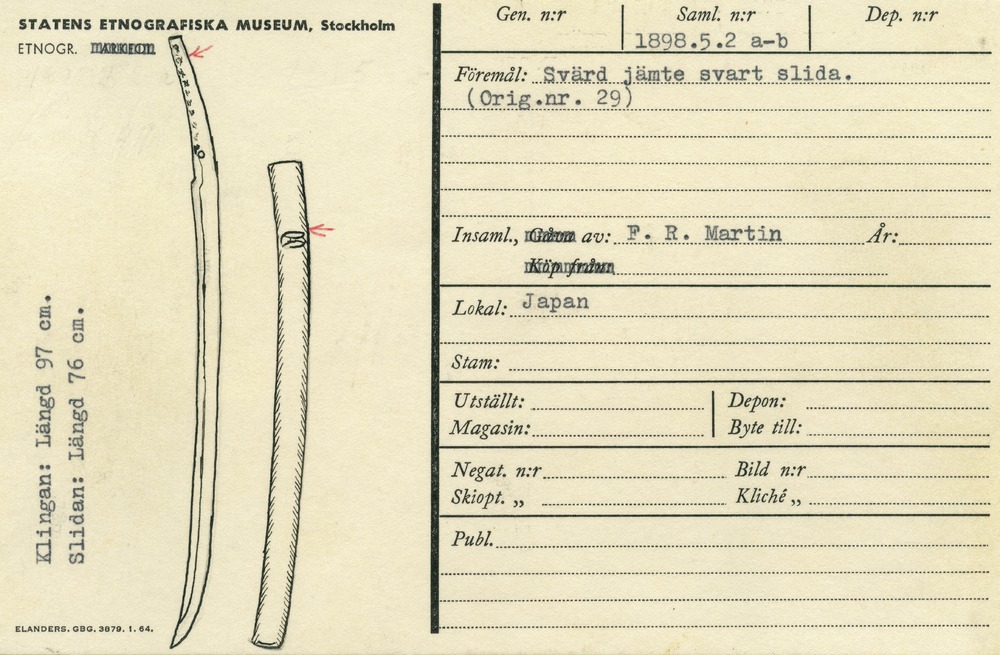 STATENS ETNOGRAFISKA MUSEUM, Stockholm
ETNOGR.
Klingan: Längd 97 cm.
Slidan: Längd 76 cm.
ELANDERS. GBG. 3879. 1. 64.
Gen. n:r Saml. n:r Dep. n:r
1898.5.2 a-b
Föremål: Svärd jämte svart slida.
(Orig.nr. 29)
Insaml., Gåva av: F. R. Martin År:
Köp från:
Lokal: Japan
Stam:
Utställt: Depon:
Magasin: Byte till:
Negat. n:r Bild n:r
Skiopt. „ Kliché „
Publ.